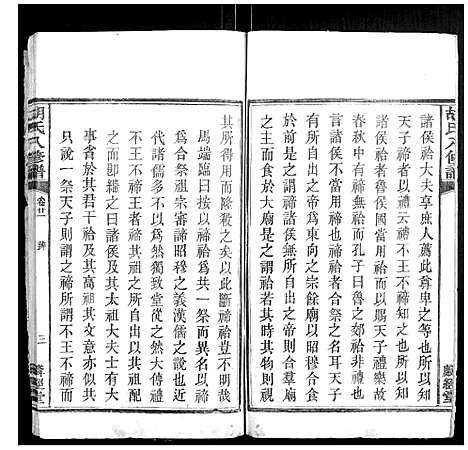 胡氏八修譜
諸侯祫大夫享庶人薦此尊卑之等也所以知
天子禘者以禮云禘不王不禘知之也所以知
諸侯祫者魯侯國當用祫而以賜天子禮樂故
春秋中有禘無祫孔子曰魯之郊禘非禮也可
見魯當用祫也禘祫者合祭祖宗之名耳天子
有所自出之帝為東向之尊餘廟以昭穆合食
於前是之謂禘諸侯無所自出之帝則合羣廟
之主而食於大廟是之謂祫若其時其主只視
敘經堂
其所得用而隆殺之矣以此斷禘祫豈不明哉
馬端臨曰按以禘祫為共一祭而異名以禘
為合祭祖宗審諦昭穆之義漢儒之說也近
代諸儒多不以為然獨致堂從之然大傳禮
不王不禘王者禘其祖之所自出以其祖配
之而即繼之曰諸侯及其太祖大夫士有大
事省於其君干祫及其高祖其文意亦似共
只說一祭天子則謂之禘所謂不王不禘而
胡氏八修譜
卷廿
三
敘經堂